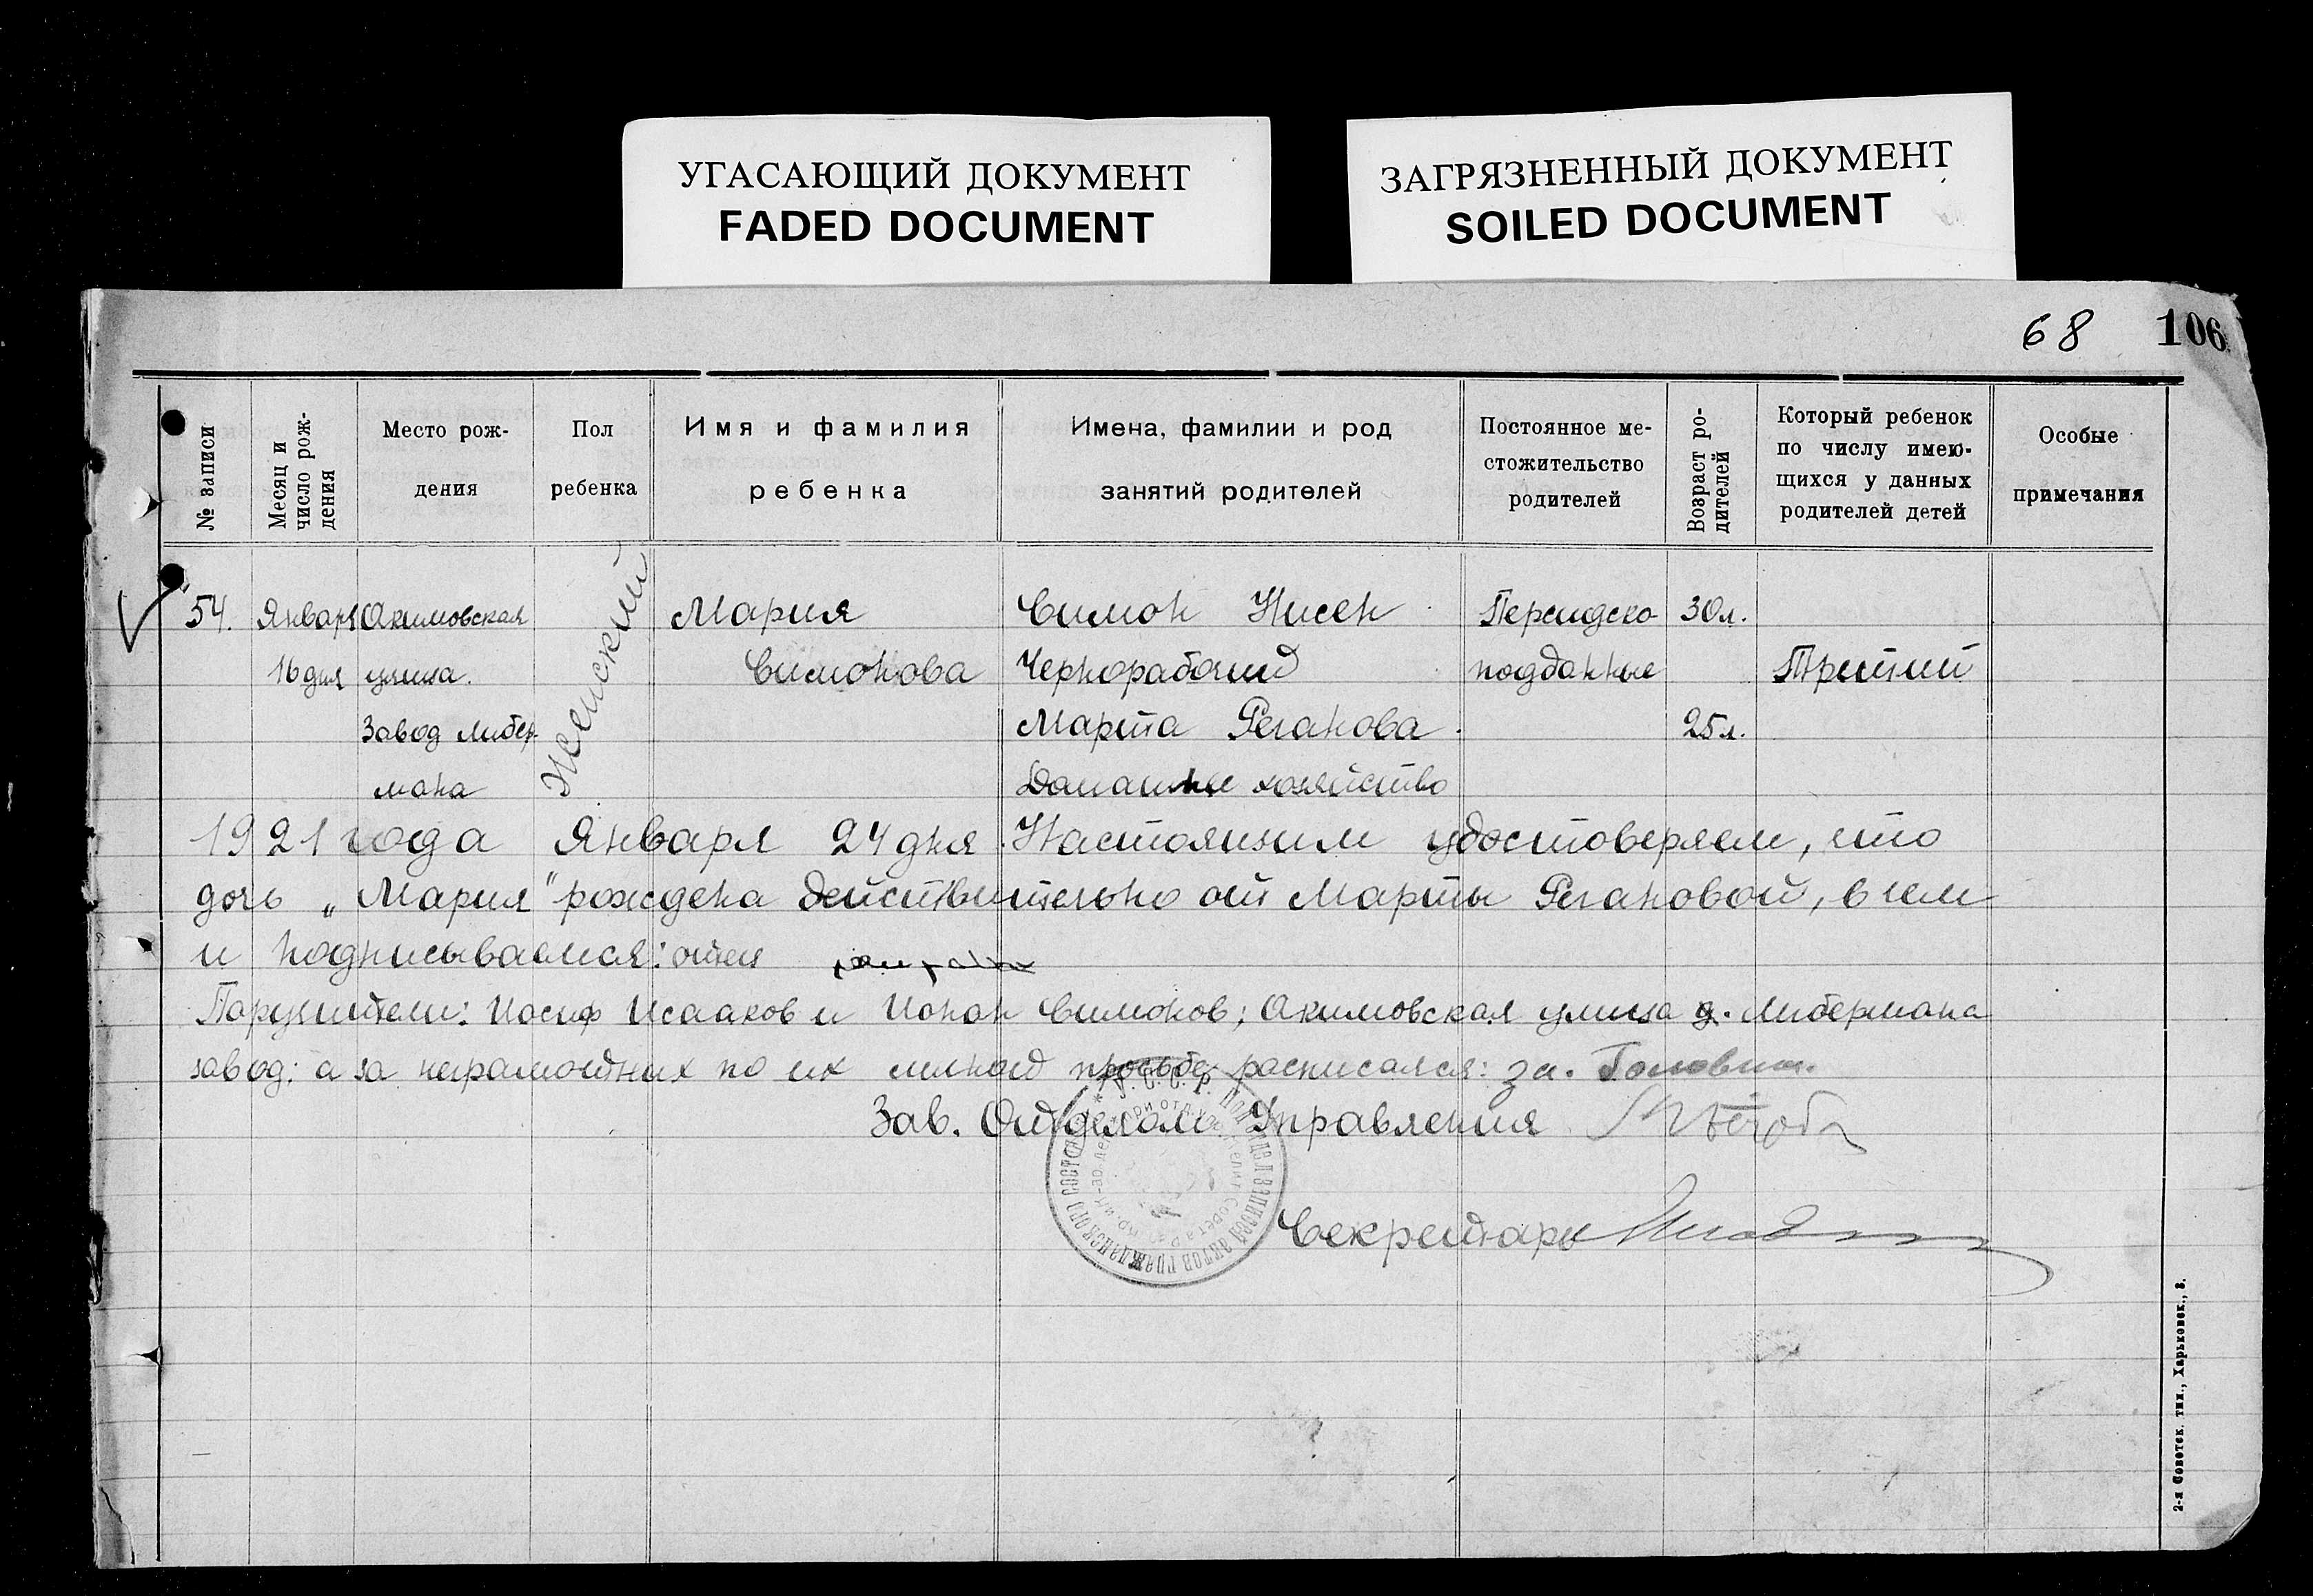 УГАСАЮЩИЙ ДОКУМЕНТ
FADED DOCUMENT
ЗАГРЯЗНЕННЫЙ ДОКУМЕНТ
SOILED DOCUMENT
68 106
№ записи
Месяц и число рождения
Место рождения
Пол ребенка
Имя и фамилия ребенка
Имена, фамилии и род занятий родителей
Постоянное местожительство родителей
Возраст родителей
Который ребенок по числу имеющихся у данных родителей детей
Особые примечания
54. Января Акимовская Мария Симон Нисен Персидско 30л.
16 дня улица. Женский Симонова Чернорабочий подданные Третий
Завод Либер- Марта Геганова. 25л.
мана Домашнее хозяйство
1921 года Января 24 дня. Настоящим удостоверяем, что
дочь „Мария" рождена действительно от Марты Гегановой, в чем
и подписываемся: отец
Поручители: Иосиф Исааков и Ионан Симонов; Акимовская улица д. Либермана
завод; а за неграмотных по их личной просьбе расписался: за.
Зав. Отделом Управления
Секретарь
2-я Советск. тип., Харьковск., 3.